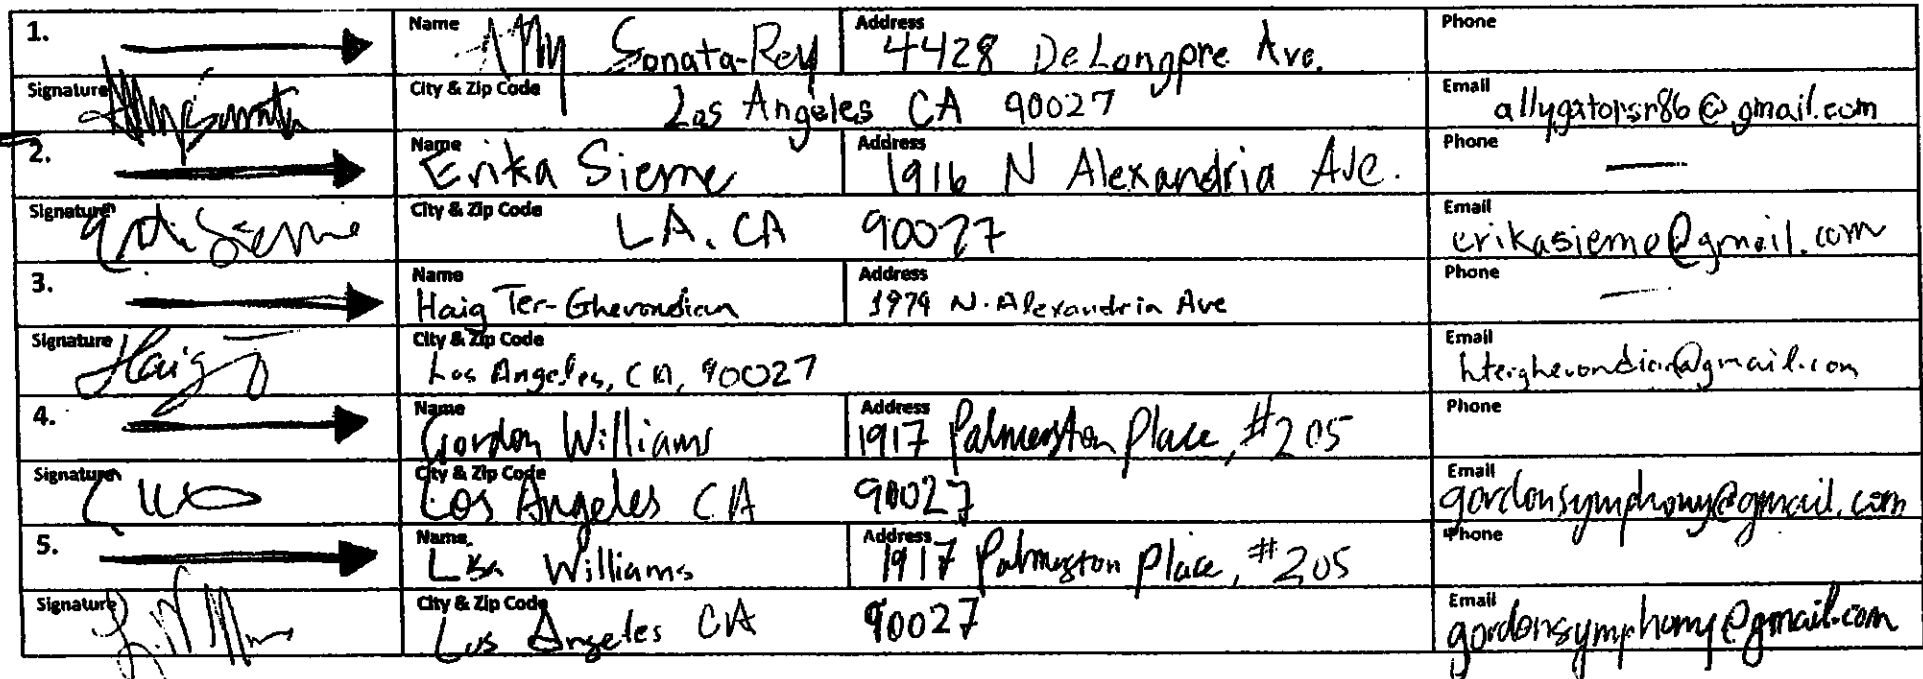 1. Name Ally Sonata-Rey Address 4428 DeLongpre Ave. Phone
Signature City & Zip Code Los Angeles CA 90027 Email allygatorsr86@gmail.com
2. Name Erika Sieme Address 1916 N Alexandria Ave. Phone —
Signature Erika Sieme City & Zip Code LA. CA 90027 Email erikasieme@gmail.com
3. Name Haig Ter-Ghevondian Address 1979 N. Alexandria Ave Phone —
Signature Haig T City & Zip Code Los Angeles, CA, 90027 Email hterghevondian@gmail.com
4. Name Gordon Williams Address 1917 Palmerston Place, #205 Phone
Signature City & Zip Code Los Angeles CA 90027 Email gordonsymphony@gmail.com
5. Name Lisa Williams Address 1917 Palmerston Place, #205 Phone
Signature City & Zip Code Los Angeles CA 90027 Email gordonsymphony@gmail.com